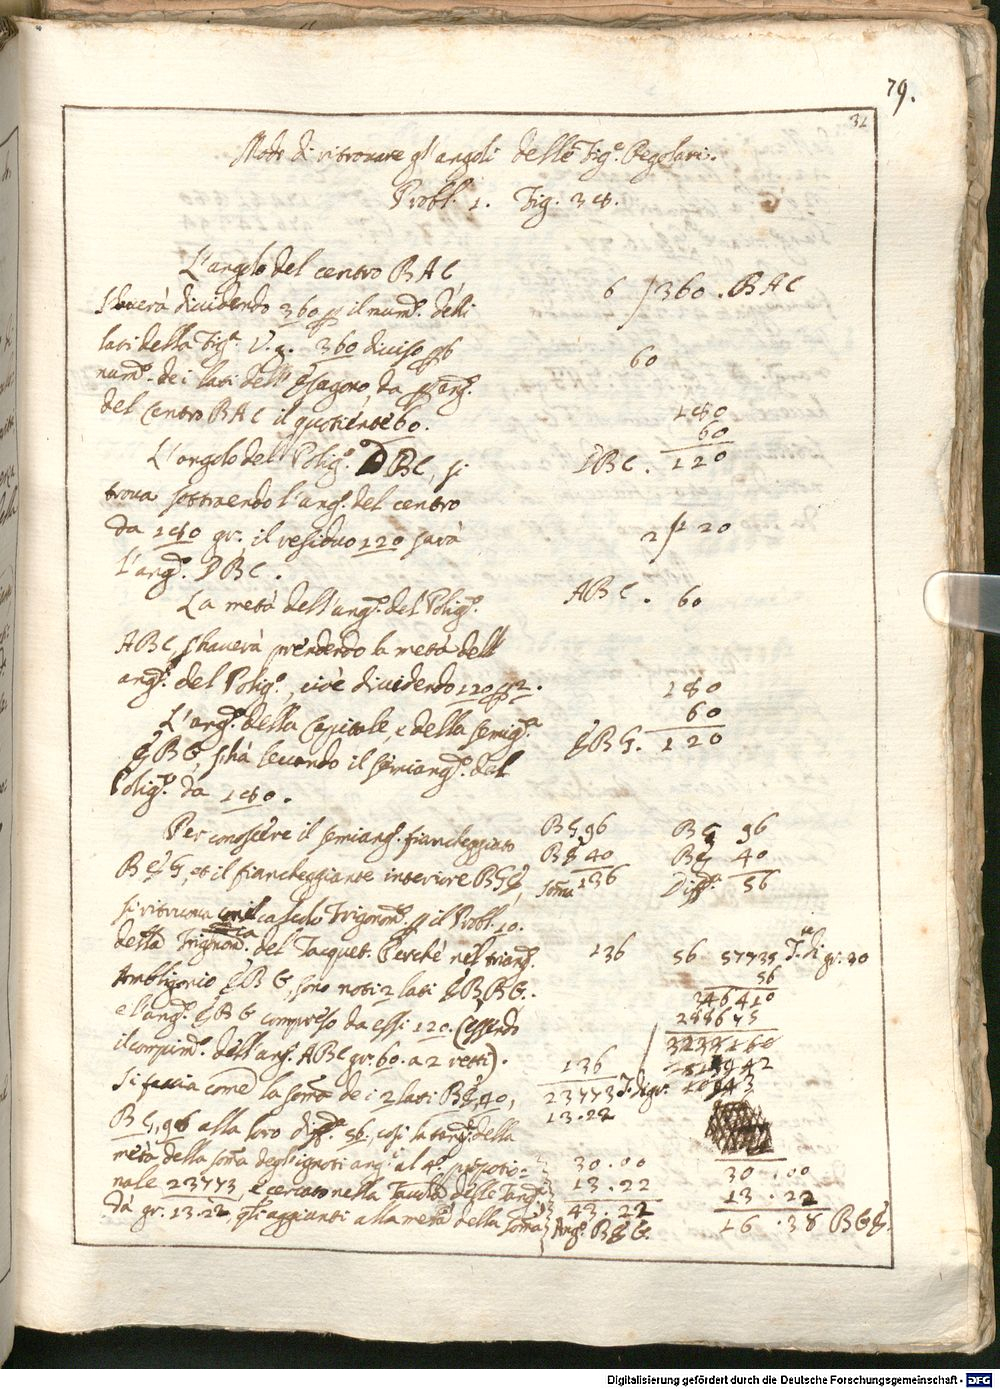 79.
31
Modo di ritrovare gl'angoli delle Fig.e Regolari.
Probl. 1. Fig. 38.
L'angolo del centro BAC
s'haverà dividendo 360 p il num.o delli
lati della Fig.a V.g. 360 diviso p 6
num.o de i lati dell'Esagono, da p ang.o
del Centro BAC il quotiente 60.
L'angolo del Polig.o DBC, si
trova sottraendo l'ang.o del centro
da 180 gr. il residuo 120 sarà
L'ang.o DBC.
La metà dell'ang.o del Polig.o
ABC, s'haverà prendendo la metà dell'
ang.o del Polig.o, cioè dividendo 120 p 2.
L'ang.o della Capitale, e della semig.a
EBG, s'hà levando il semiang.o del
Polig.o da 180.
Per conoscere il semiang.o fiancheggiato
BEG, et il fiancheggiante interiore BGE,
si ritrova con il calcolo Trigonom.o p il Probl. 10.
della Trigonom.a del Tacquet. Perchè nel triang.o
Ambligonio EBG, sono noti 2 lati EB, BG.
e l'ang.o EBG compreso da essi 120. (essendo
il complim.o dell'ang.o ABC gr. 60. a 2 retti).
Si faccia come la soma de i 2 lati BE, 40,
BG, 96 alla loro diff.a 56., così la tang.e della
metà della soma degl'ignoti ang.i al 4.o proportio-
nale 23773, e cercato nella Tavola delle Tang.i
dà gr. 13.22, q.li aggianti alla metà della soma
6 / 360 . BAC
60
180
60
DBC . 120
2 / 120
ABC . 60
180
60
EBG. 120
BG 96
BE 40
Soma 136
BG 96
BE 40
Diff.a 56
136 56 57735 T. di gr. 30
56
346410
288675
3233160
136
23773 T. di gr.
13.22
30.00
13.22
43.22
Ang.o BEG.
30.00
13.22
16.38 BGE.
Digitalisierung gefördert durch die Deutsche Forschungsgemeinschaft - DFG